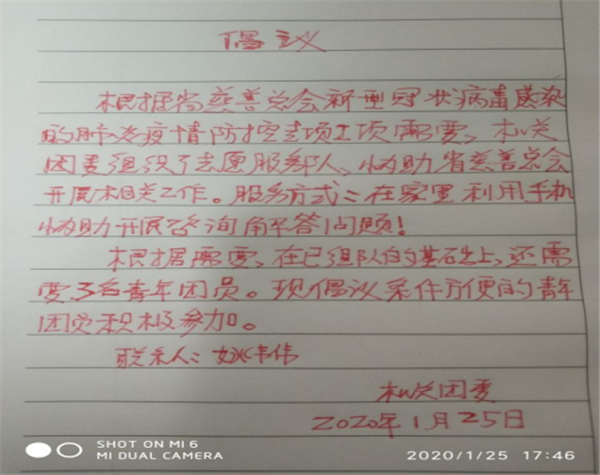 倡议
根据省慈善总会新型冠状病毒感染
的肺炎疫情防控专项工项需要，机关
团委组织了志愿服务队人，协助省慈善总会
开展相关工作。服务方式：在家里利用手机
协助开展咨询解答问题！
根据需要，在已组队的基础上，还需
要3名青年团员。现倡议条件方便的青年
团员积极参加。
联系人：姚伟
机关团委
2020年1月25日
SHOT ON MI 6
MI DUAL CAMERA
2020/1/25 17:46